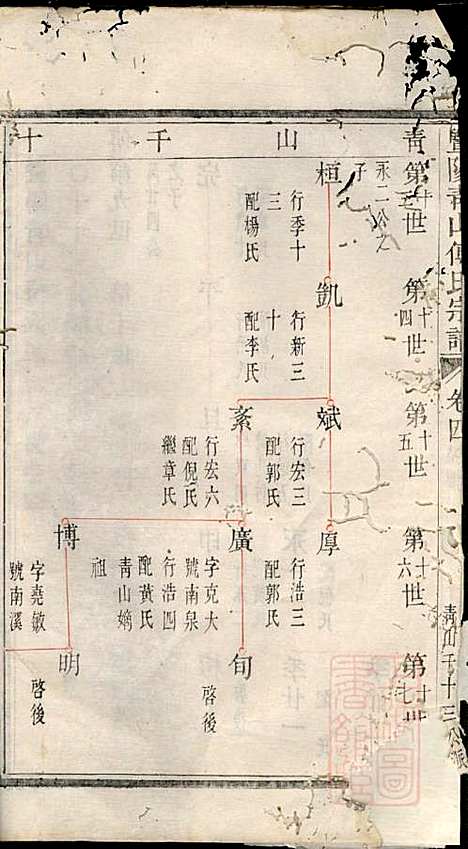 暨陽青山傅氏宗譜
卷四
青山千十三公派
青
山
千
十
第十三世
第十四世
第十五世
第十六世
第十七世
永二公之
子
桓
行季十
三
配楊氏
凱
行新三
十
配李氏
斌
行宏三
配郭氏
厚
行浩三
配郭氏
紊
行宏六
配倪氏
繼章氏
廣
字克大
號南泉
行浩四
配黃氏
青山嫡
祖
旬
啓後
博
字堯敏
號南溪
明
啓後